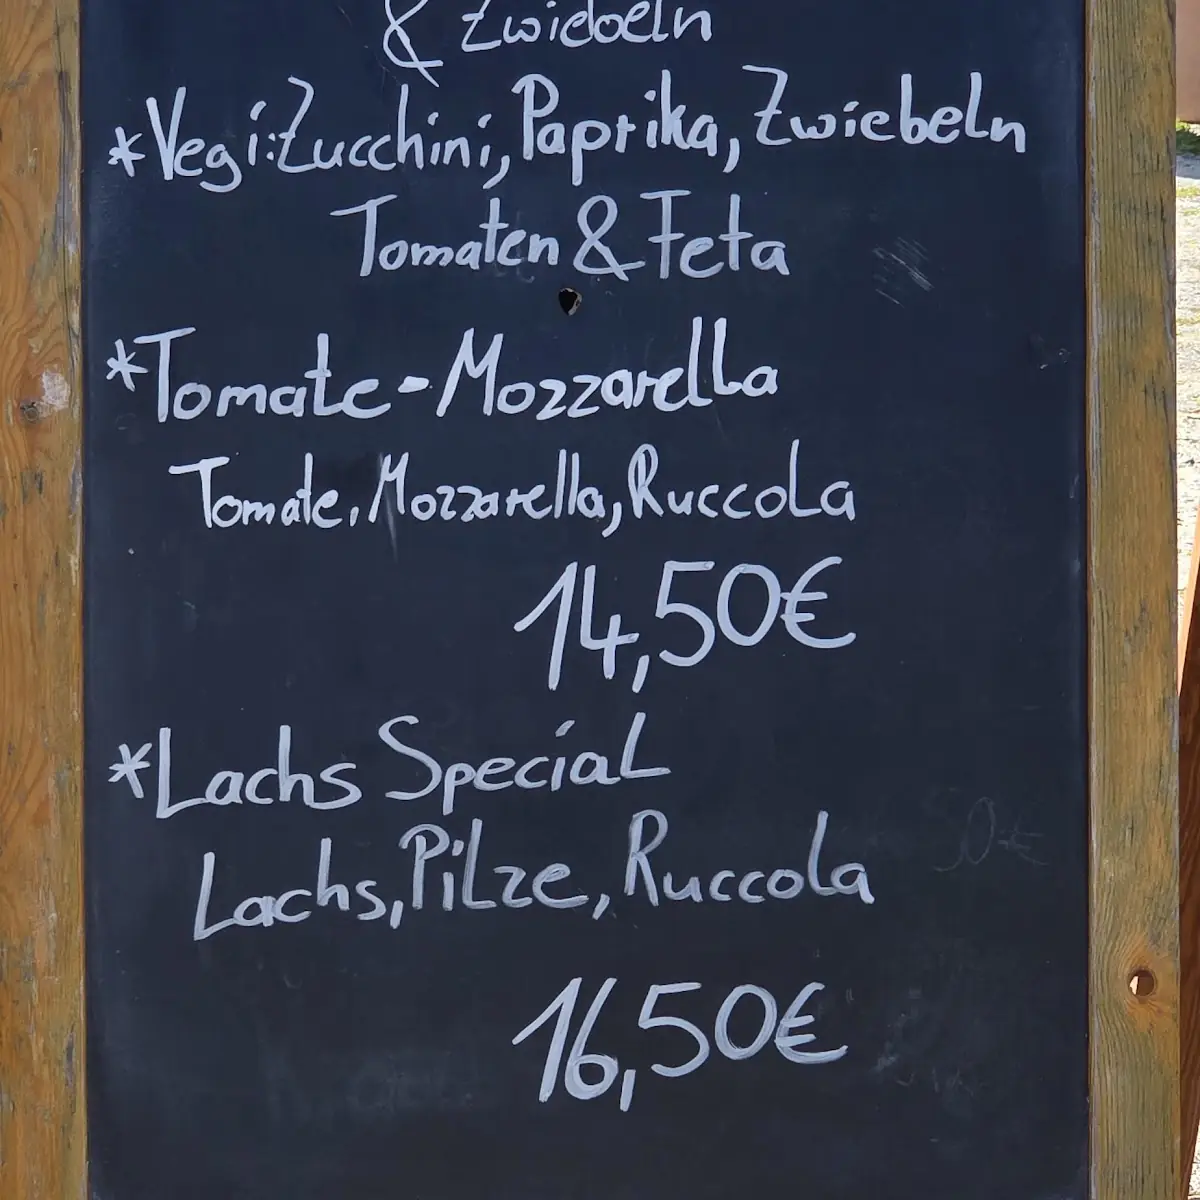 & Zwiebeln
*Vegi: Zucchini, Paprika, Zwiebeln
Tomaten & Feta
*Tomate-Mozzarella
Tomate, Mozzarella, Ruccola
14,50€
*Lachs Special
Lachs, Pilze, Ruccola
16,50€